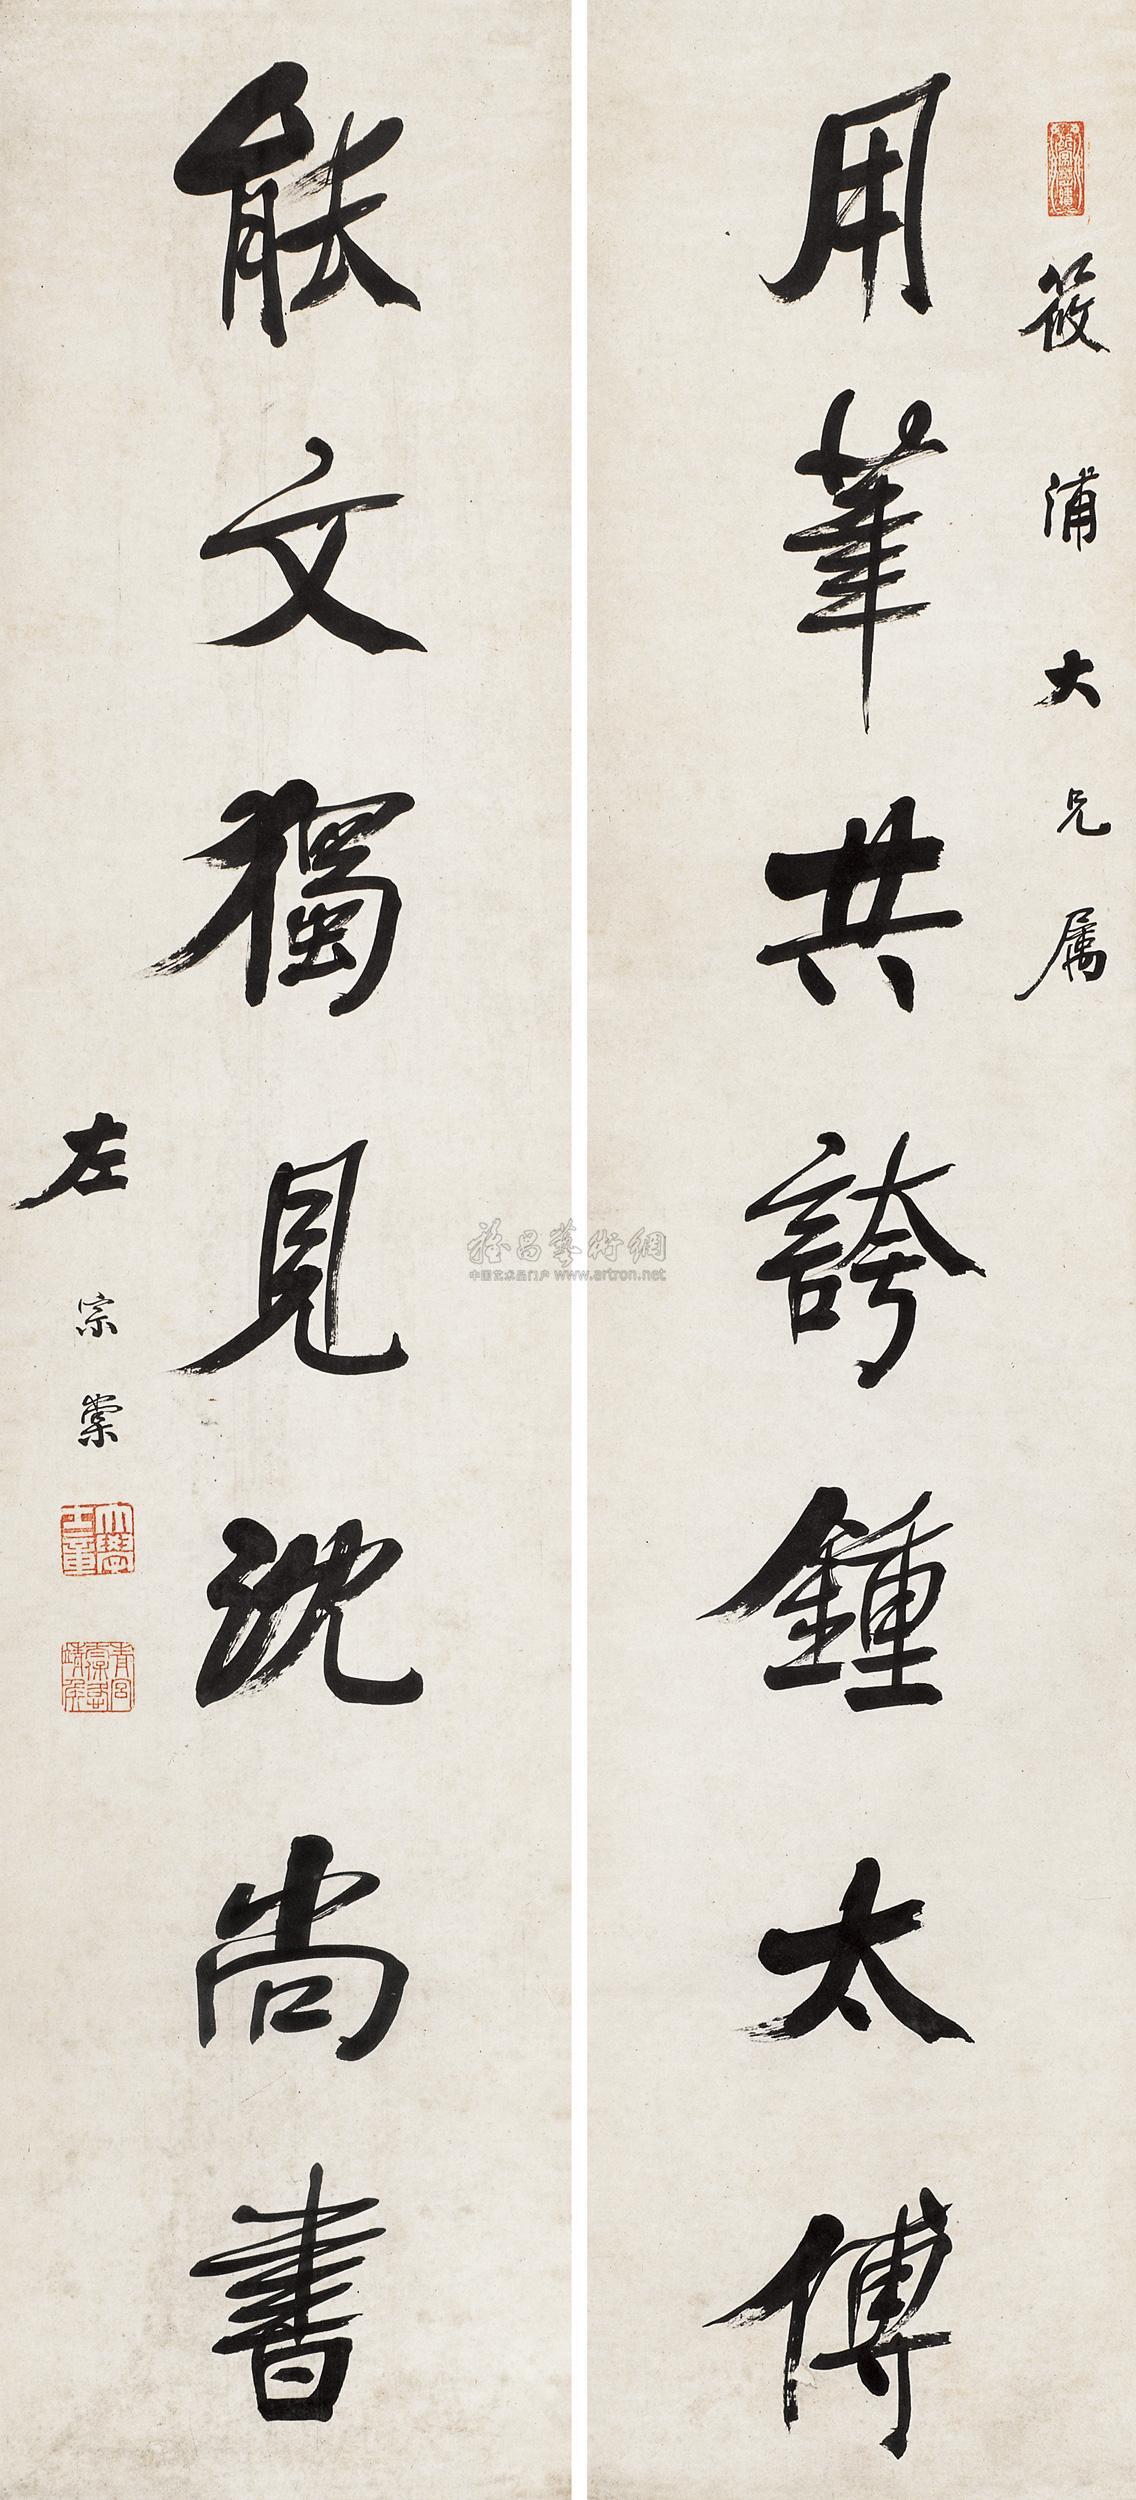 筱浦大兄属
用筆共誇鍾太傅
能文獨見沈尚書
左宗棠
大學士章
青宮太保恪靖侯
雅昌藝術網
中国艺术品门户 www.artron.net